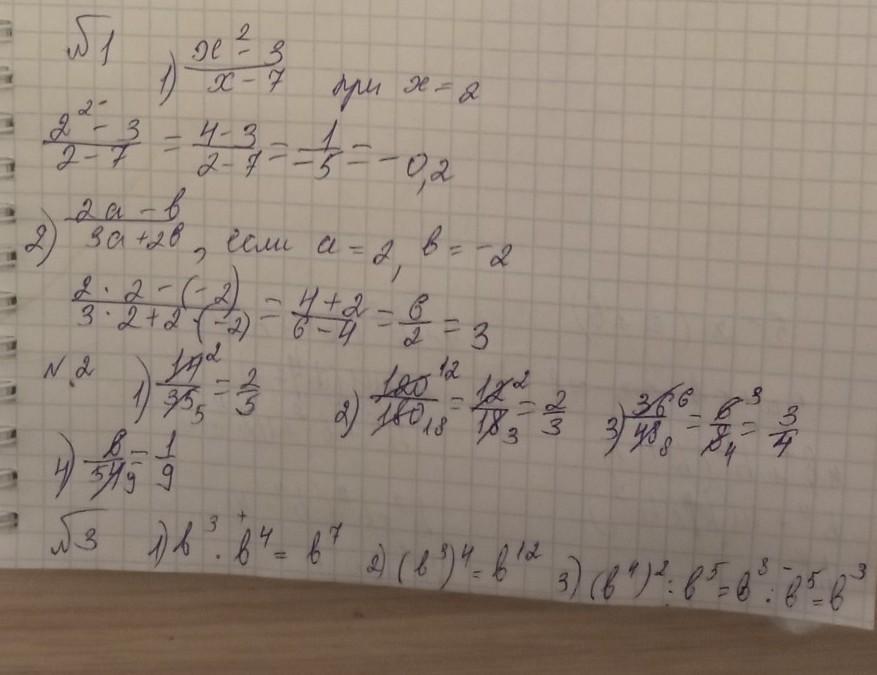 №1
1) (x² - 3)/(x - 7) при x = 2
(2² - 3)/(2 - 7) = (4 - 3)/(2 - 7) = 1/(-5) = -0,2
2) (2a - b)/(3a + 2b), если a = 2, b = -2
(2 · 2 - (-2))/(3 · 2 + 2 · (-2)) = (4 + 2)/(6 - 4) = 6/2 = 3
N.2 1) 14²/35₅ = 2/5 2) 120¹²/180₁₈ = 12²/18₃ = 2/3 3) 36⁶/48₈ = 6³/8₄ = 3/4
4) 6/54₉ = 1/9
№3 1) b³ · b⁴ = b⁷ 2) (b³)⁴ = b¹² 3) (b⁴)² : b⁵ = b⁸ : b⁵ = b³